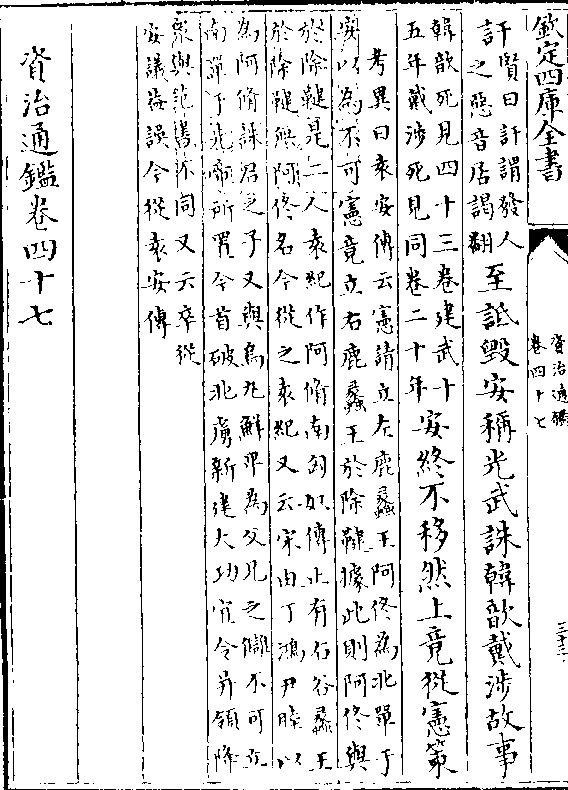 欽定四庫全書
資治通鑑
卷四十七
三十三
訐賢曰訐謂發人
之惡音居謁翻
至詆毀安稱光武誅韓歆戴涉故事
韓歆死見四十三卷建武十
五年戴涉死見同卷二十年
安終不移然上竟從憲策
考異曰袁安傳云憲請立左鹿蠡王阿佟為北單于
安以為不可憲竟立右鹿蠡王於除鞬據此則阿佟與
於除鞬是二人袁紀作阿脩南匈奴傳止有右谷蠡王
於除鞬無阿佟名今從之袁紀又云宋由丁鴻尹睦以
為阿脩誅君之子又與烏丸鮮卑為父兄之讎不可立
南單于先帝所置今首破北虜新建大功宜令并領降
衆與範書不同又云卒從
安議蓋誤今從袁安傳
資治通鑑卷四十七